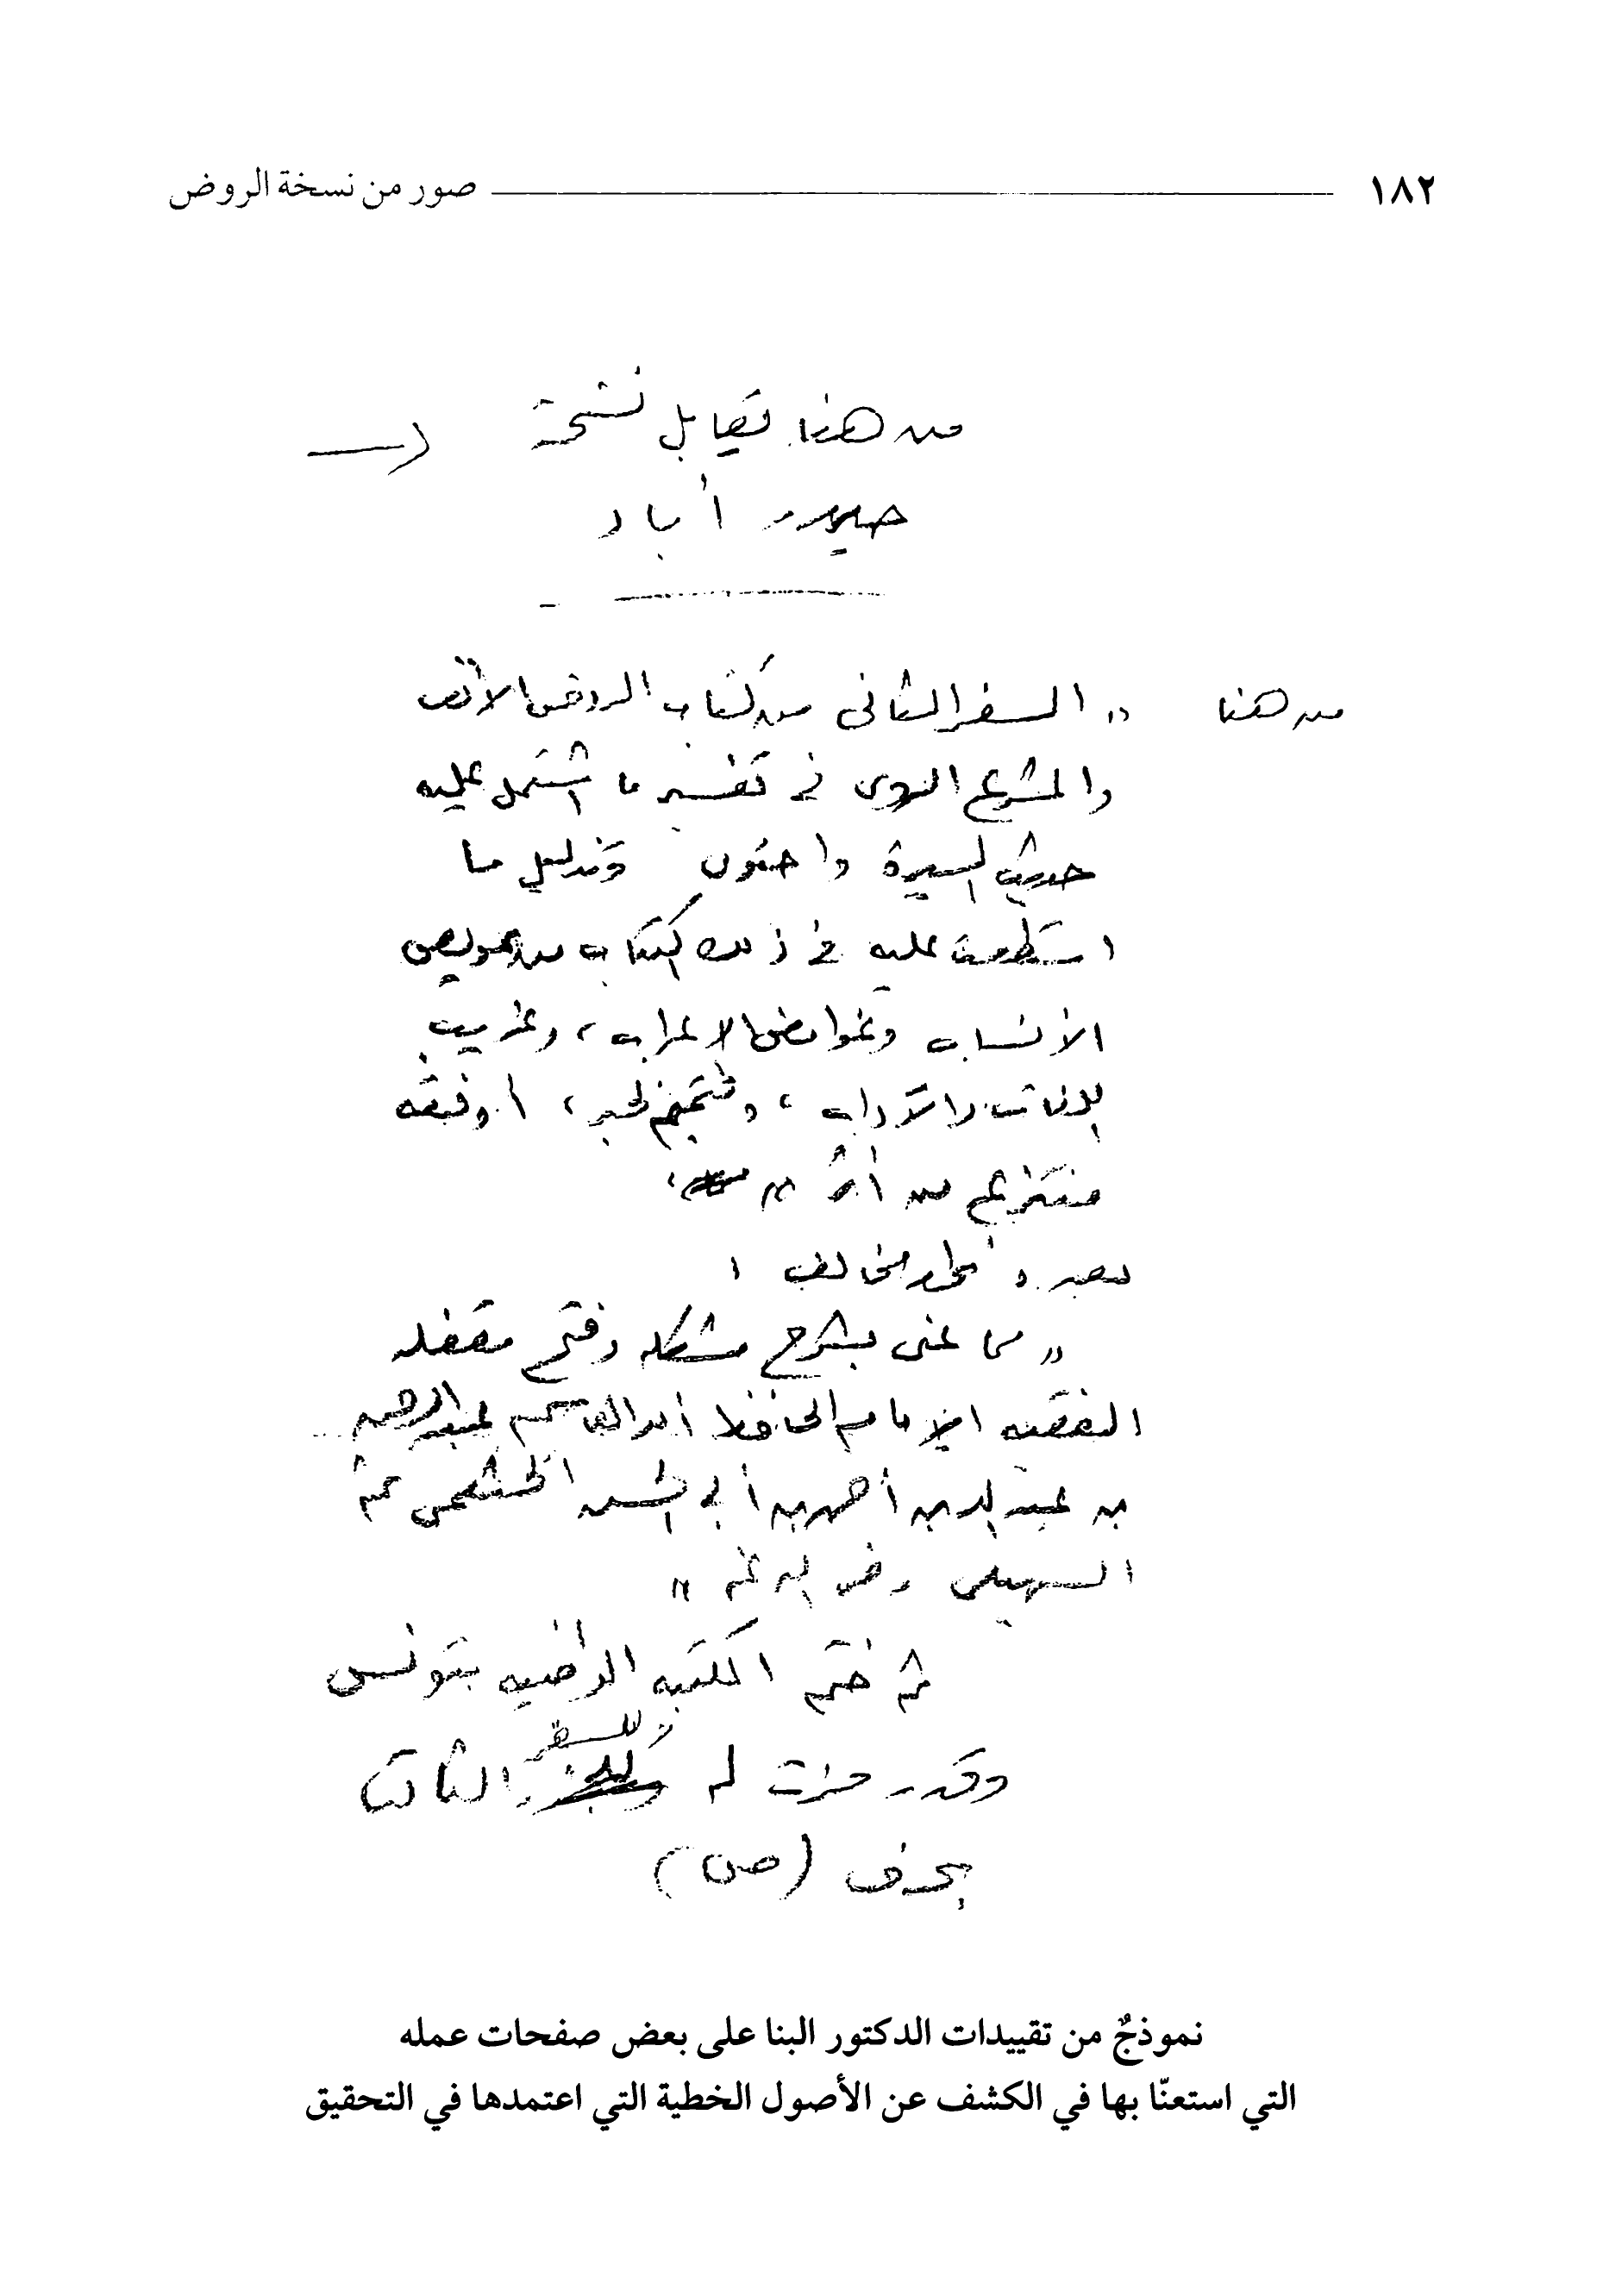 ١٨٢ صور من نسخة الروض
من هنا تقابل نسخة
حيدر أباد
من هنا " السفر الثاني من كتاب الروض الأنف
والمشرع الروى في تفسير ما اشتمل عليه
حديث السيرة واحتوى وتدليل ما
استطعت عليه في ذلك الكتاب من عويص
الأنساب وغوامض الاعراب، وغريب
اللغات والآداب، و لخبر، أو فقه
منتزع من أثر "
بعده بخط مخالف :
" مما عنى بشرح مشكله وفتح مقفله
الفقيه الإمام الحافظ أبو القاسم عبد الرحمن
بن عبد الله بن أحمد بن أبي الحسن الخثعمى ثم
السهيلى رضى الله عنه "
ثم ختم المكتبه بتونس
وقد رمزت له للسفر الثالث
بحرف (ص)
نموذجٌ من تقييدات الدكتور البنا على بعض صفحات عمله
التي استعنّا بها في الكشف عن الأصول الخطية التي اعتمدها في التحقيق